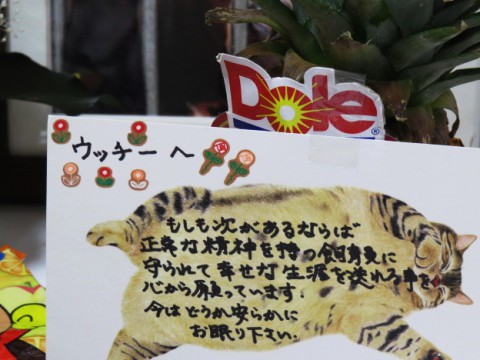 Dole
®
ウッチーへ
もしも次があるならば
正常な精神を持つ飼育員に
守られて幸せな生涯を送れる事を
心から願っています。
今はどうか安らかに
お眠り下さい。